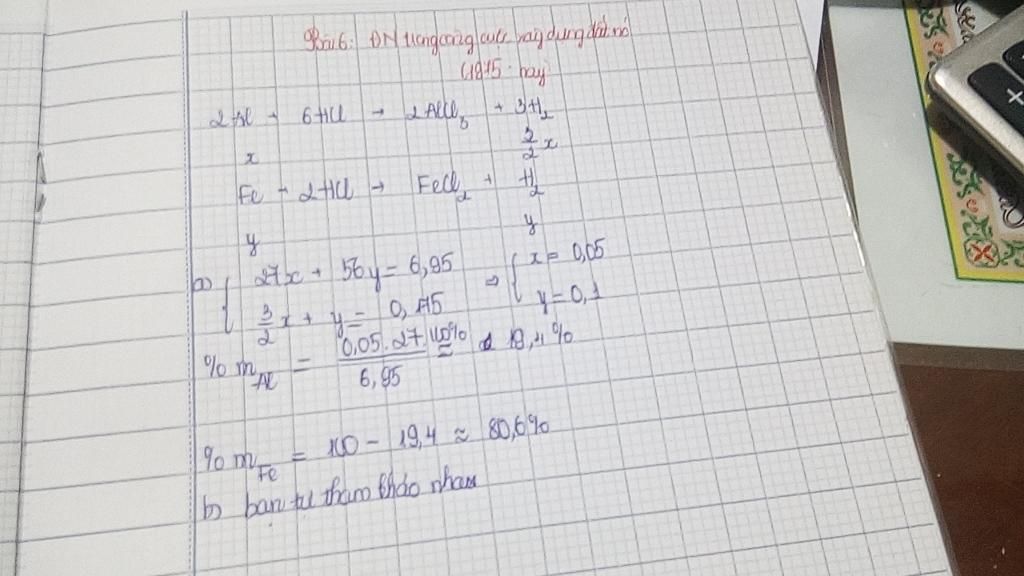 Bài 6: ĐN trong công cuộc xây dựng đất nc
(1975 nay)
2Al + 6HCl → 2AlCl3 + 3H2
x 3/2 x
Fe + 2HCl → FeCl2 + H2
y y
a) { 27x + 56y = 6,95 ⇒ { x = 0,05
3/2 x + y = 0,175 y = 0,1
% mAl = 0,05.27.100% / 6,95 = 19,4%
% mFe = 100 - 19,4 ≈ 80,6%
b) bạn tự tham khảo nhau